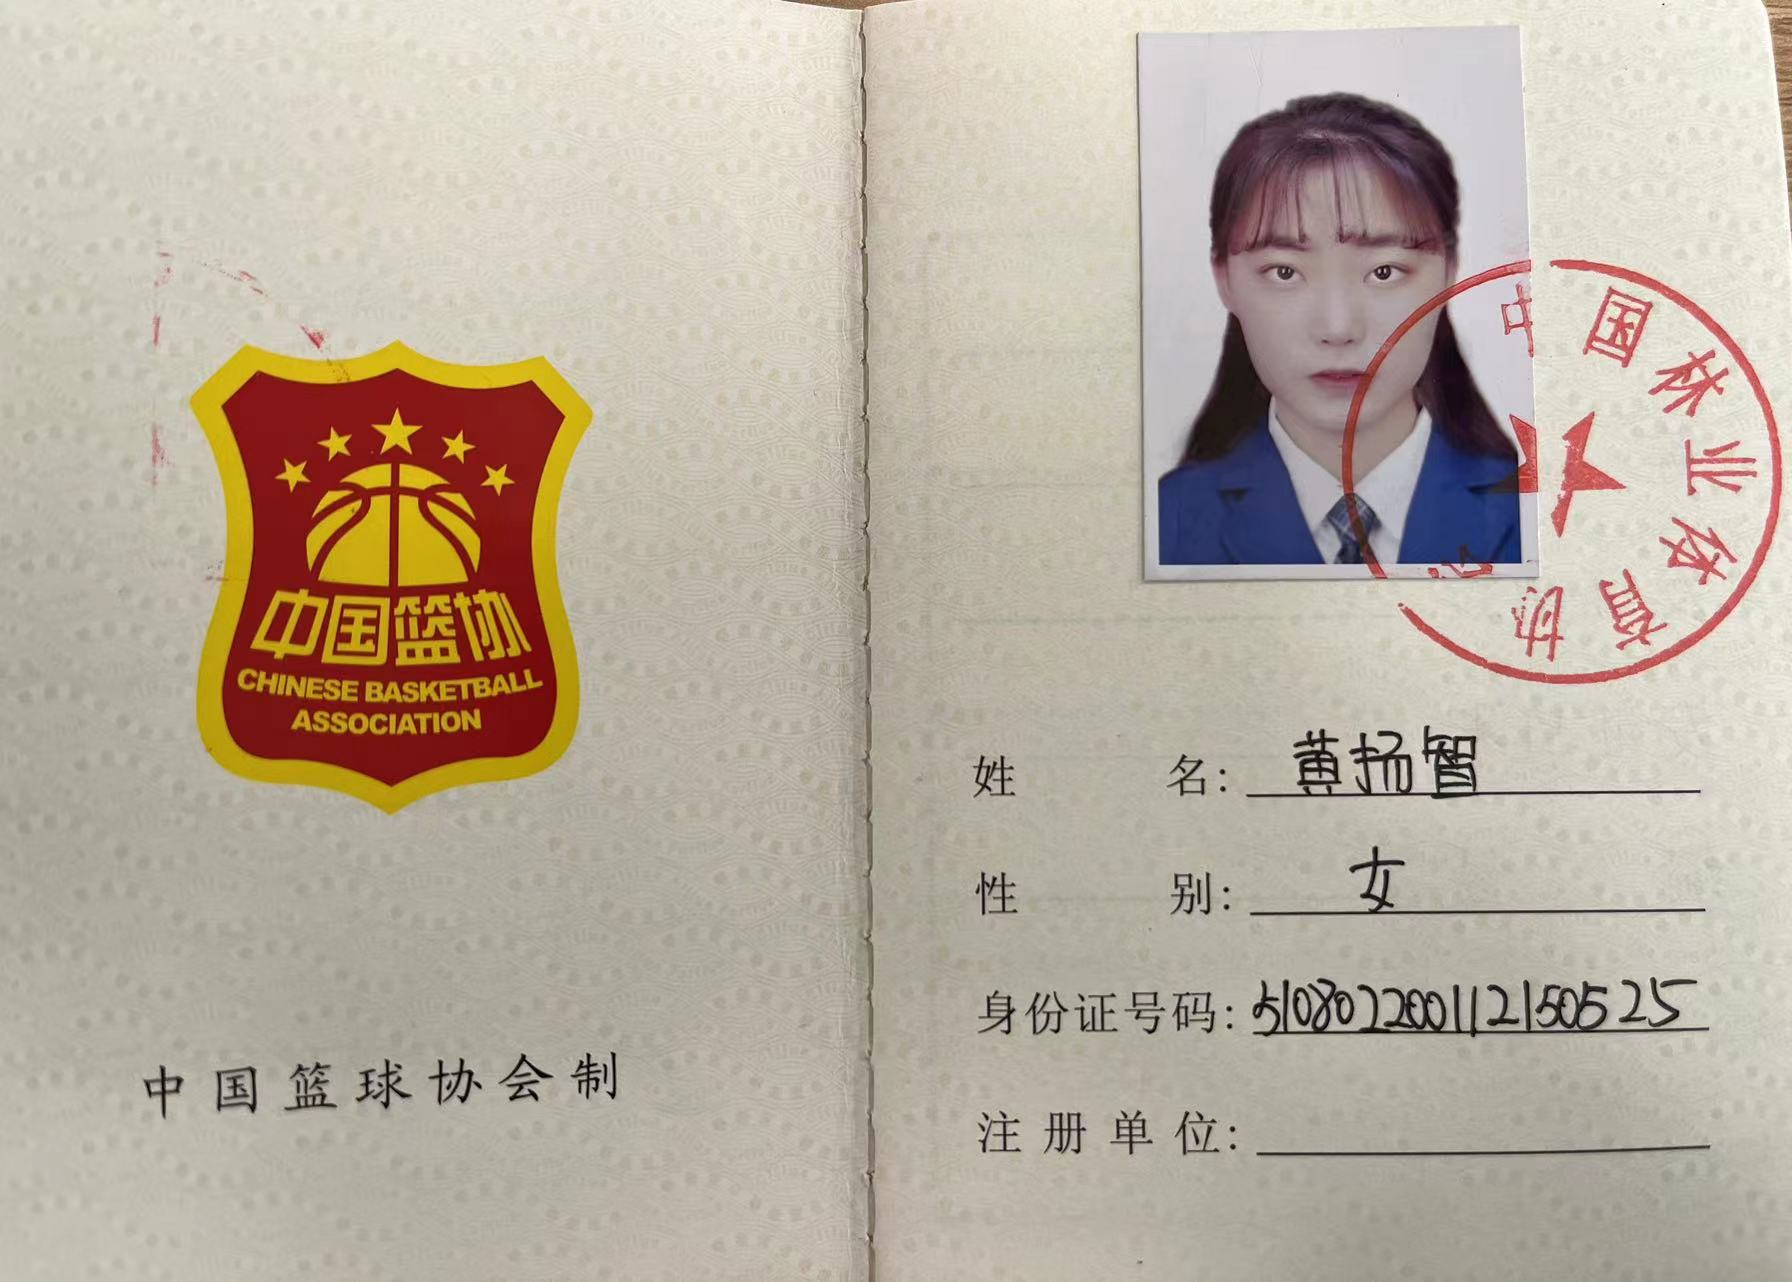 中国篮协
CHINESE BASKETBALL
ASSOCIATION
中国篮球协会制
中国林业体育协会
姓名：黄扬智
性别：女
身份证号码：510802200112150525
注册单位：